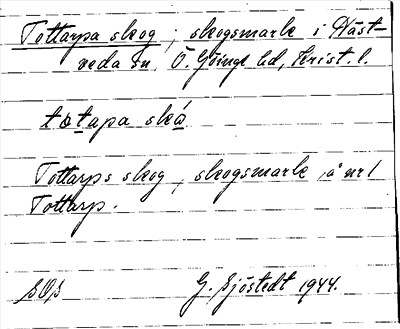 Tottarpa skog, skogsmark i Häst-
veda sn Ö. Göinge hd, Krist. l.
totapa skå
Tottarps skog, skogsmark, å nr 1
Tottarp.
G. Sjöstedt 1944.